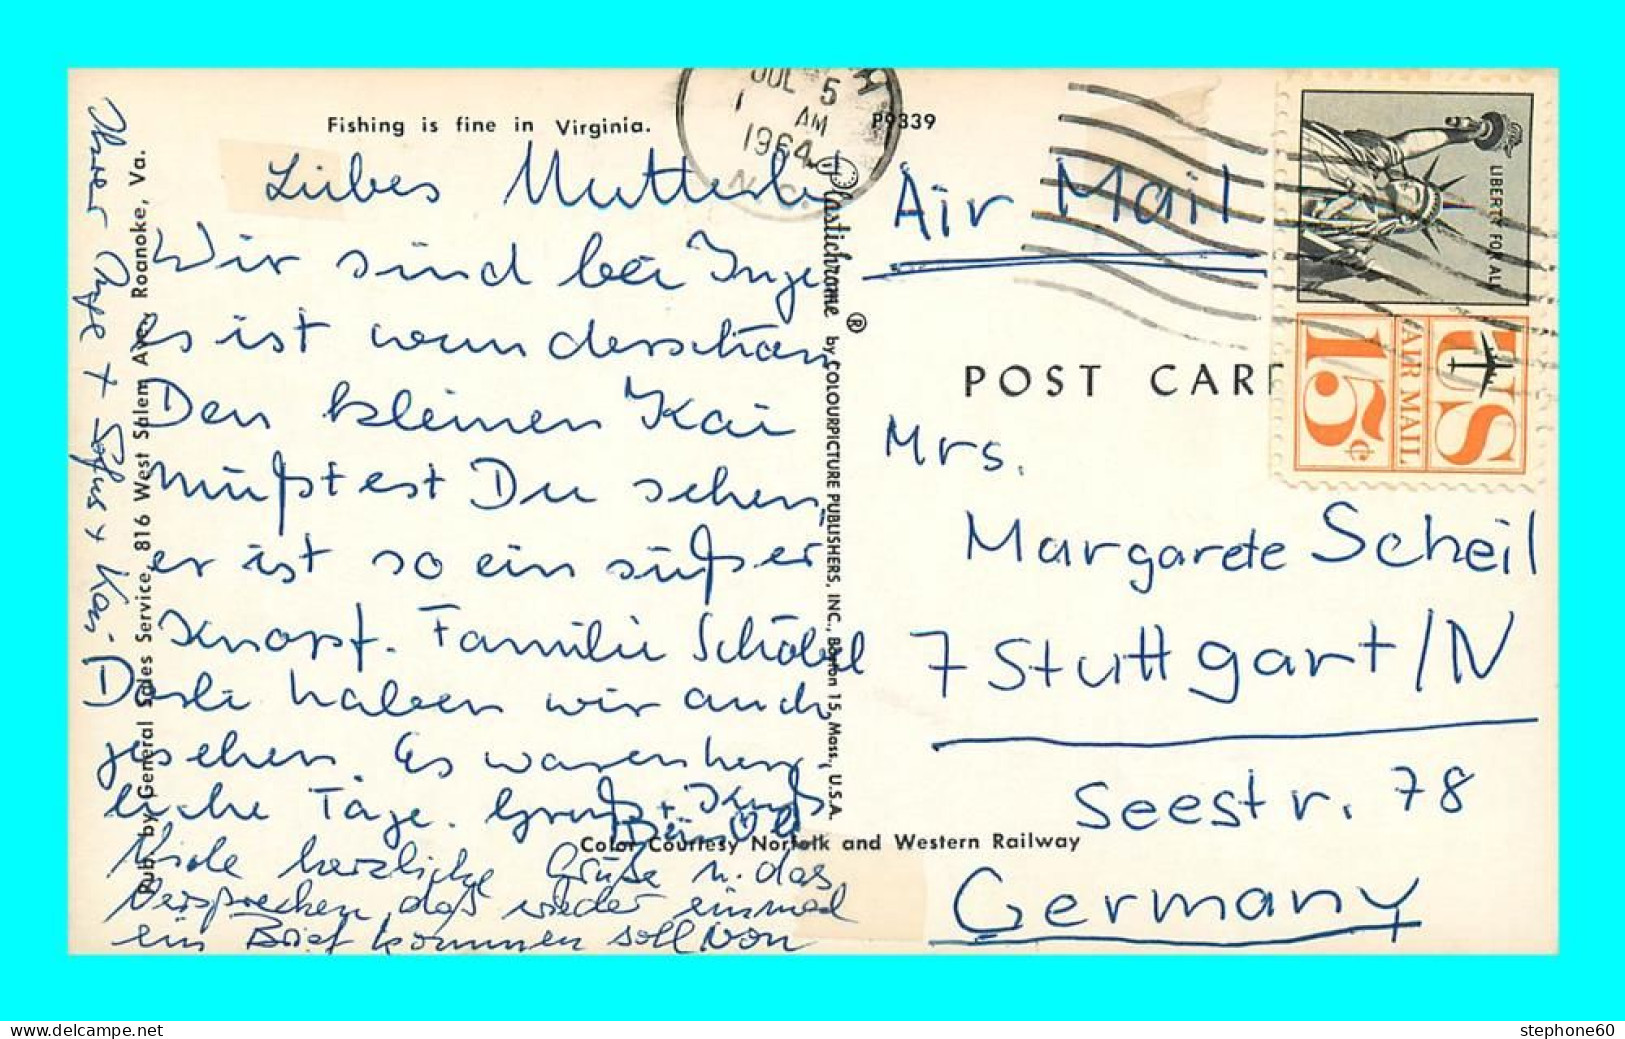 Fishing is fine in Virginia.
P9339
JUL 5
AM
1964
N.C.
Liebes Mutterle
Wir sind bei Inge
es ist wunderschön
Den kleinen Kai
müßtest Du sehen,
er ist so ein süßer
Knopf. Familie Schöbel
Derle haben wir auch
gesehen. Es waren herr
liche Tage. Gruß + Kuß
Color Courtesy Norfolk and Western Railway
Viele herzliche Grüße u. das
Versprechen, daß wieder einmal
ein Brief kommen soll von
Ihrer Inge + Rolf + Kai
Pub. by General Sales Service, 816 West Salem Ave., Roanoke, Va.
Plastichrome ® by COLOURPICTURE PUBLISHERS, INC., Boston 15, Mass., U.S.A.
Air Mail
POST CARD
LIBERTY FOR ALL
US
AIR MAIL
15¢
Mrs.
Margarete Scheil
7 Stuttgart/N
Seestr. 78
Germany
Delcampe.net
stephone60